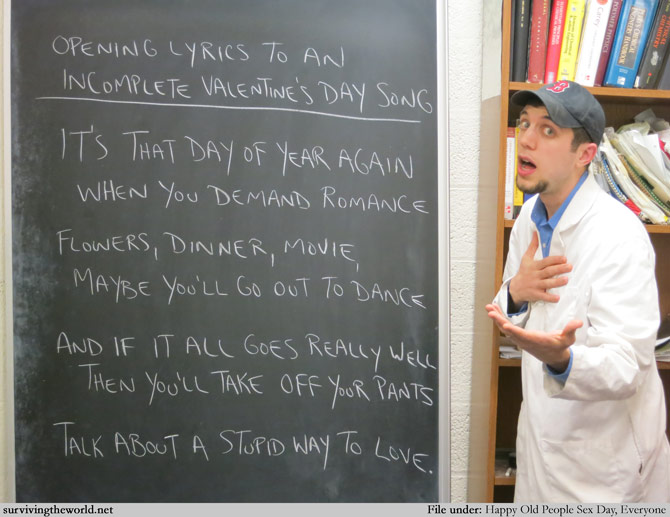 OPENING LYRICS TO AN
INCOMPLETE VALENTINE'S DAY SONG
IT'S THAT DAY OF YEAR AGAIN
WHEN YOU DEMAND ROMANCE
FLOWERS, DINNER, MOVIE,
MAYBE YOU'LL GO OUT TO DANCE
AND IF IT ALL GOES REALLY WELL
THEN YOU'LL TAKE OFF YOUR PANTS
TALK ABOUT A STUPID WAY TO LOVE.
survivingtheworld.net
File under: Happy Old People Sex Day, Everyone